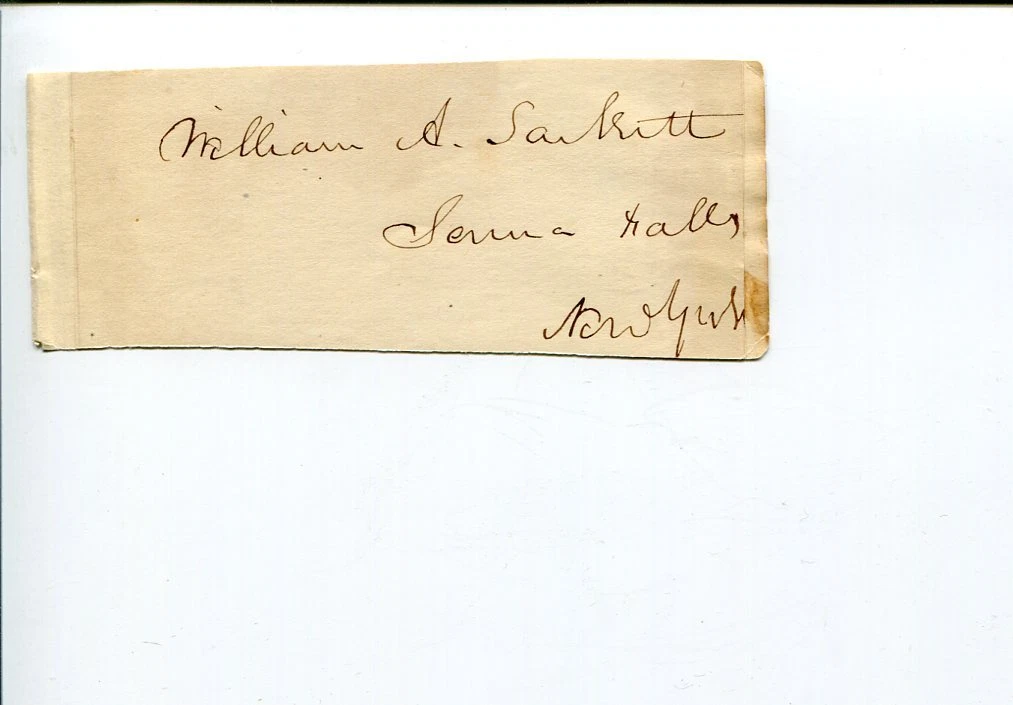 William A. Sackett
Seneca Falls
New York